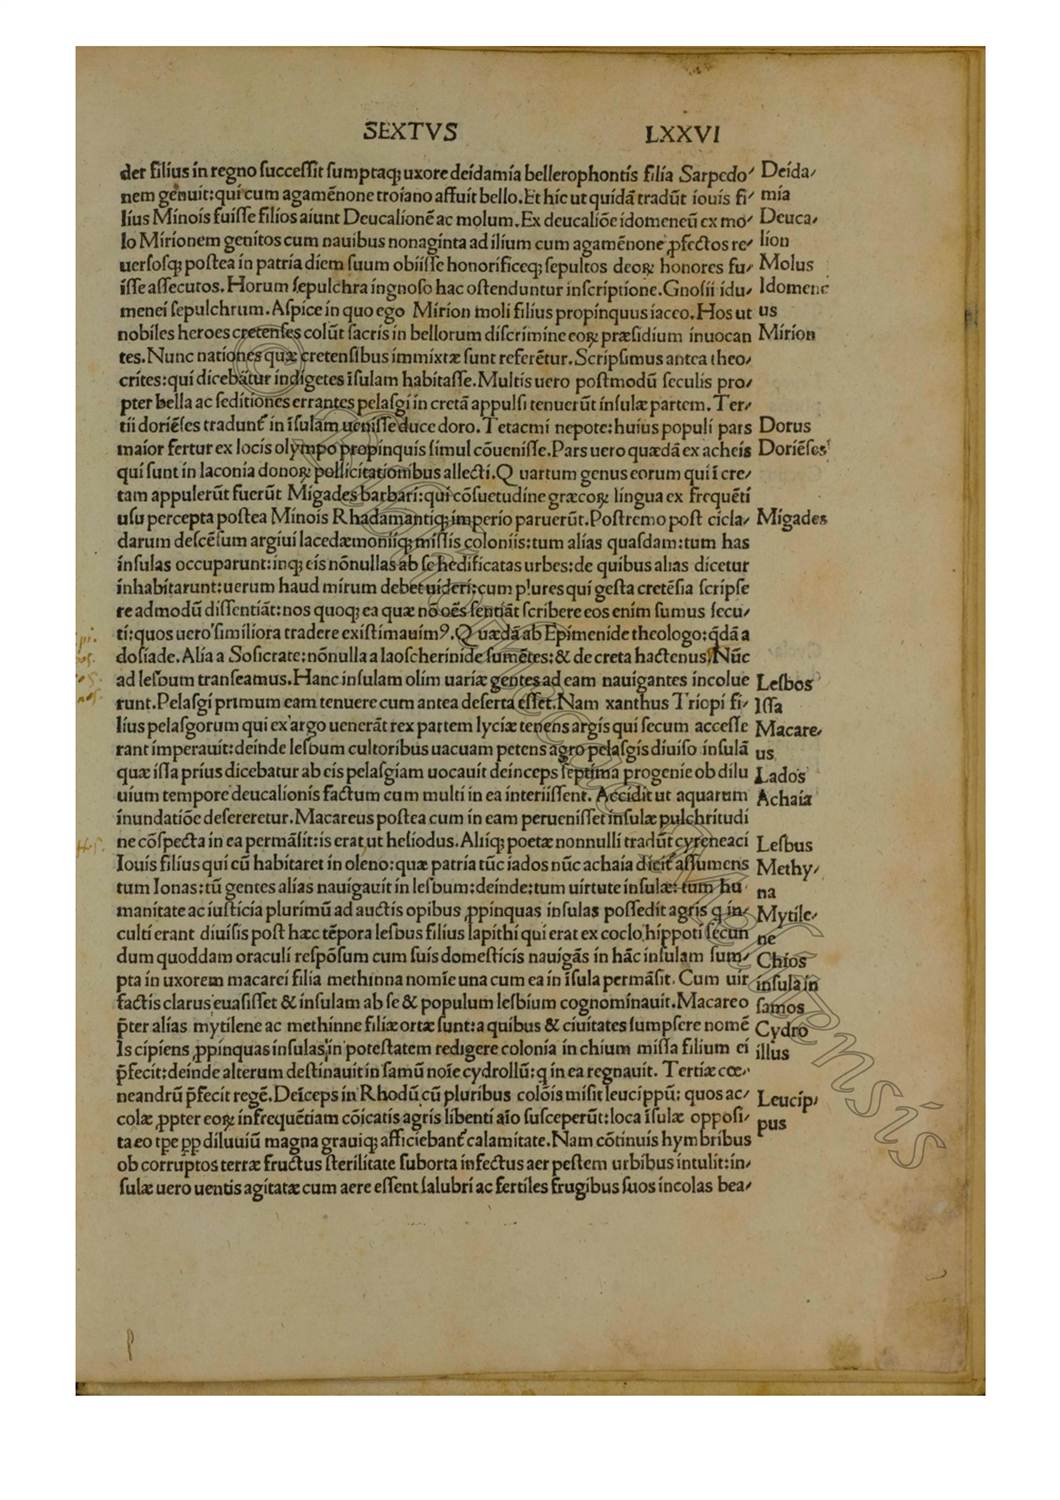 SEXTVS LXXVI
der filius in regno successit sumptaq; uxore deidamia bellerophontis filia Sarpedo/
nem genuit: qui cum agamēnone troiano affuit bello. Et hic ut quidā tradūt iouis fi/
lius Minois fuisse filios aiunt Deucalionē ac molum. Ex deucaliōe idomeneū ex mo/
lo Mirionem genitos cum nauibus nonaginta ad ilium cum agamēnone ꝓfectos re/
uersosq; postea in patria diem suum obiisse honorificeq; sepultos deoꝝ honores fu/
isse assecutos. Horum sepulchra ingnoso hac ostenduntur inscriptione. Gnosii idu/
menei sepulchrum. Aspice in quo ego Mirion moli filius propinquus iaceo. Hos ut
nobiles heroes cretenses colūt sacris in bellorum discrimine eoꝝ præsidium inuocan
tes. Nunc nationes quæ cretensibus immixtæ sunt referētur. Scripsimus antea theo/
crites: qui dicebātur indigetes īsulam habitasse. Multis uero postmodū seculis pro/
pter bella ac seditiones errantes pelasgi in cretā appulsi tenuerūt insulæ partem. Ter/
tii doriēses tradunt̄ in īsulam uenisse duce doro. Tetacmi nepote: huius populi pars
maior fertur ex locis olympo propinquis simul cōuenisse. Pars uero quædā ex acheis
qui sunt in laconia donoꝝ pollicitationibus allecti. Quartum genus eorum qui ī cre/
tam appulerūt fuerūt Migades barbari: qui cōsuetudine græcoꝝ lingua ex frequēti
usu percepta postea Minois Rhadamantiq; imperio paruerūt. Postremo post cicla/
darum descēsum argiui lacedæmoniiq; missis coloniis: tum alias quasdam: tum has
insulas occuparunt: inq; eis nōnullas ab se hedificatas urbes: de quibus alias dicetur
inhabitarunt: uerum haud mirum debet uideri: cum plures qui gesta cretēsia scripse
re admodū dissentiāt: nos quoq; ea quæ nō oēs sentiāt scribere eos enim sumus secu/
ti: quos uero similiora tradere existimauimꝰ. Quædā ab Epimenide theologo: q̄dā a
dosiade. Alia a Sosicrate: nōnulla a laoscherinide sumētes: & de creta hactenus. Nūc
ad lesbum transeamus. Hanc insulam olim uariæ gentes ad eam nauigantes incolue
runt. Pelasgi primum eam tenuere cum antea deserta esset. Nam xanthus Triopi fi/
lius pelasgorum qui ex argo uenerāt rex partem lyciæ tenens argis qui secum accesse
rant imperauit: deinde lesbum cultoribus uacuam petens agro pelasgis diuiso insulā
quæ issa prius dicebatur ab eis pelasgiam uocauit deinceps septima progenie ob dilu
uium tempore deucalionis factum cum multi in ea interiissent. Accidit ut aquarum
inundatiōe desereretur. Macareus postea cum in eam peruenisset insulæ pulchritudi
ne cōspecta in ea permāsit: is erat ut hesiodus. Aliiq; poetæ nonnulli tradūt cyreneaci
Iouis filius qui cū habitaret in oleno: quæ patria tūc iados nūc achaia dicit̄ assumens
tum Ionas: tū gentes alias nauigauit in lesbum: deinde: tum uirtute insulæ: tum hu
manitate ac iusticia plurimū ad auctis opibus ꝓpinquas insulas possedit agris q in/
culti erant diuisis post hæc tēpora lesbus filius lapithi qui erat ex coelo hippoti secun
dum quoddam oraculi respōsum cum suis domesticis nauigās in hāc insulam sum/
pta in uxorem macarei filia methinna nomīe una cum ea in īsula permāsit. Cum uir
factis clarus euasisset & insulam ab se & populum lesbium cognominauit. Macareo
p̄ter alias mytilene ac methinne filiæ ortæ sunt: a quibus & ciuitates sumpsere nomē
Is cipiens ꝓpinquas insulas in potestatem redigere colonia in chium missa filium ei
p̄fecit: deinde alterum destinauit in samū noīe cydrollū: q in ea regnauit. Tertiæ coe/
neandrū p̄fecit regē. Deīceps in Rhodū cū pluribus colōis misit leucippū: quos ac/
colæ ꝓpter eoꝝ infrequētiam cōicatis agris libenti aīo susceperūt: loca īsulæ opposi/
ta eo tp̄e pp̄ diluuiū magna grauiq; afficiebant̄ calamitate. Nam cōtinuis hymbribus
ob corruptos terræ fructus sterilitate suborta infectus aer pestem urbibus intulit: in/
sulæ uero uentis agitatæ cum aere essent salubri ac fertiles frugibus suos incolas bea/
Deida/
mia
Deuca/
lion
Molus
Idomene
us
Mirion
Dorus
Doriēses
Migades
Lesbos
Issa
Macare/
us
Lados
Achaia
Lesbus
Methy/
na
Mytile/
ne
Chios
insula in
samos
Cydro
illus
Leucip/
pus